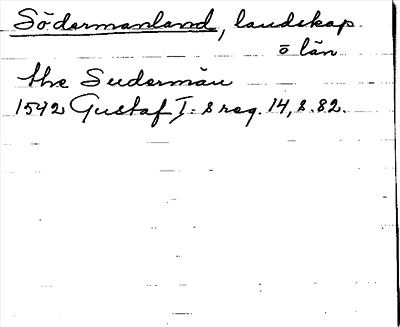 Södermanland, landskap
o län
the Sudermān
1542 Gustaf I:s reg. 14, s. 82.